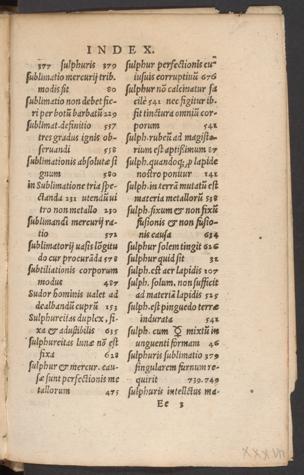 INDEX.
377 sulphuris 379
sublimatio mercurij trib.
modis sit 80
sublimatio non debet fie-
ri per botũ barbatũ 229
sublimat. definitio 557
tres gradus ignis ob-
seruandi 558
sublimationis absolutæ si
gnum 580
in Sublimatione tria spe-
ctanda 231 utendũ ui
tro non metallo 230
sublimandi mercurij ra-
tio 572
sublimatorij uasis lõgitu
do cur procurãda 578
subtiliationis corporum
modus 487
Sudor hominis ualet ad
dealbandũ cuprũ 153
Sulphureitas duplex, fi-
xa & adustibilis 635
sulphureitas lunæ nõ est
fixa 628
sulphur & mercur. cau-
sæ sunt perfectionis me
tallorum 475
sulphur perfectionis cu-
iusuis corruptiuũ 676
sulphur nõ calcinatur fa
cilè 541 nec figitur ib.
fit tinctura omniũ cor-
porum 542
sulph. rubeũ ad magiste-
rium est aptissimum 87
sulph. quandoq; p lapide
nostro ponitur 141
sulph. in terrã mutatũ est
materia metallorũ 538
sulph. fixum & non fixũ
fusionis & non fusio-
nis causa 634
sulphur solem tingit 626
sulphur quid sit 32
sulph. est aer lapidis 107
sulph. solum, non sufficit
ad materiã lapidis 525
sulph. est pinguedo terræ
indurata 541
sulph. cum ☿ mixtũ in
unguenti formam 46
sulphuris sublimatio 379
singularem furnum re-
quirit 739.749
sulphuris intellctus ma-
Ee 3
XXXVII